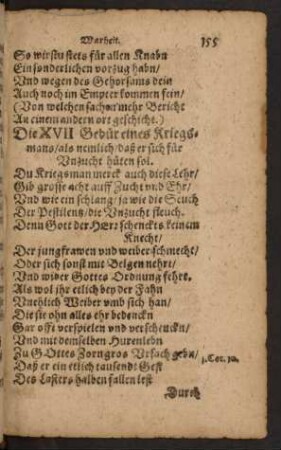 Warheit. 155
So wirstu stets für allen Knabn
Ein sonderlichen vorzug habn/
Vnd wegen des Gehorsams dein
Auch noch im Empter kommen fein/
(Von welchen sachen mehr Bericht
An einem andern ort geschicht.)
Die XVII Gebür eines Kriegs-
mans/als nemlich/daß er sich für
Vnzucht hüten sol.
Du Kriegsman merck auch diese Lehr/
Gib grosse acht auff Zucht vnd Ehr/
Vnd wie ein schlang/ja wie die Seuch
Der Pestilentz/die Vnzucht fleuch.
Denn Gott der Herr schenckts keinem
Knecht/
Der jungfrawen vnd weiber schmecht/
Oder sich sonst mit Belgen nehrt/
Vnd wider Gottes Ordnung fehrt.
Als wol ihr etlich bey der Fahn
Vnehlich Weiber vmb sich han/
Die sie ohn alles ehr bedencken
Gar offt verspielen vnd verschenckn/
Vnd mit demselben Hurenlebn
Zu Gottes Zorn gros Vrsach gebn/
1. Cor. 10.
Daß er ein etlich tausendt Gest
Des Lasters halben fallen lest
Durch